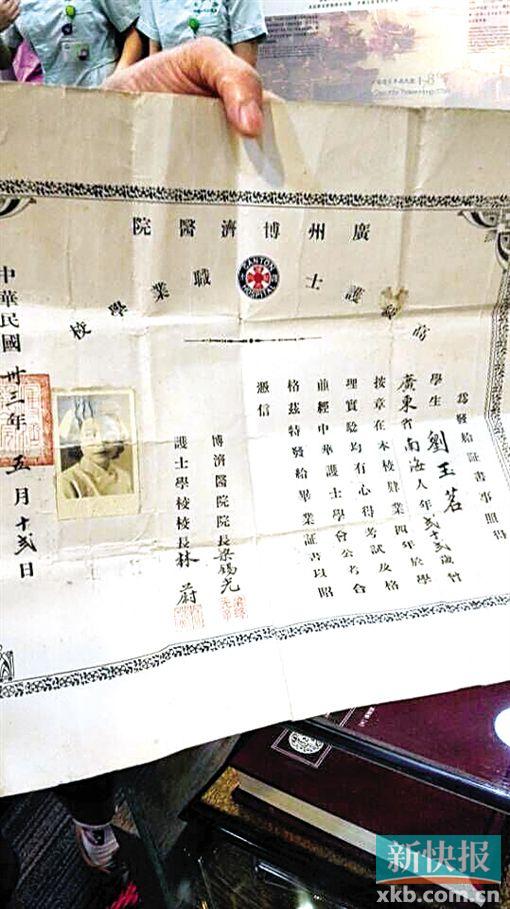 廣州博濟醫院
CANTON HOSPITAL
高級護士職業學校
為發給証書事照得
學生劉玉茗
廣東省南海人年貳十貳歲曾
按章在本校肄業四年於學
理實驗均有心得考試及格
並經中華護士學會公考合
格茲特發給畢業証書以昭
憑信
博濟醫院院長梁錫光
護士學校校長林蔚
中華民國卅三年五月十貳日
新快报
xkb.com.cn